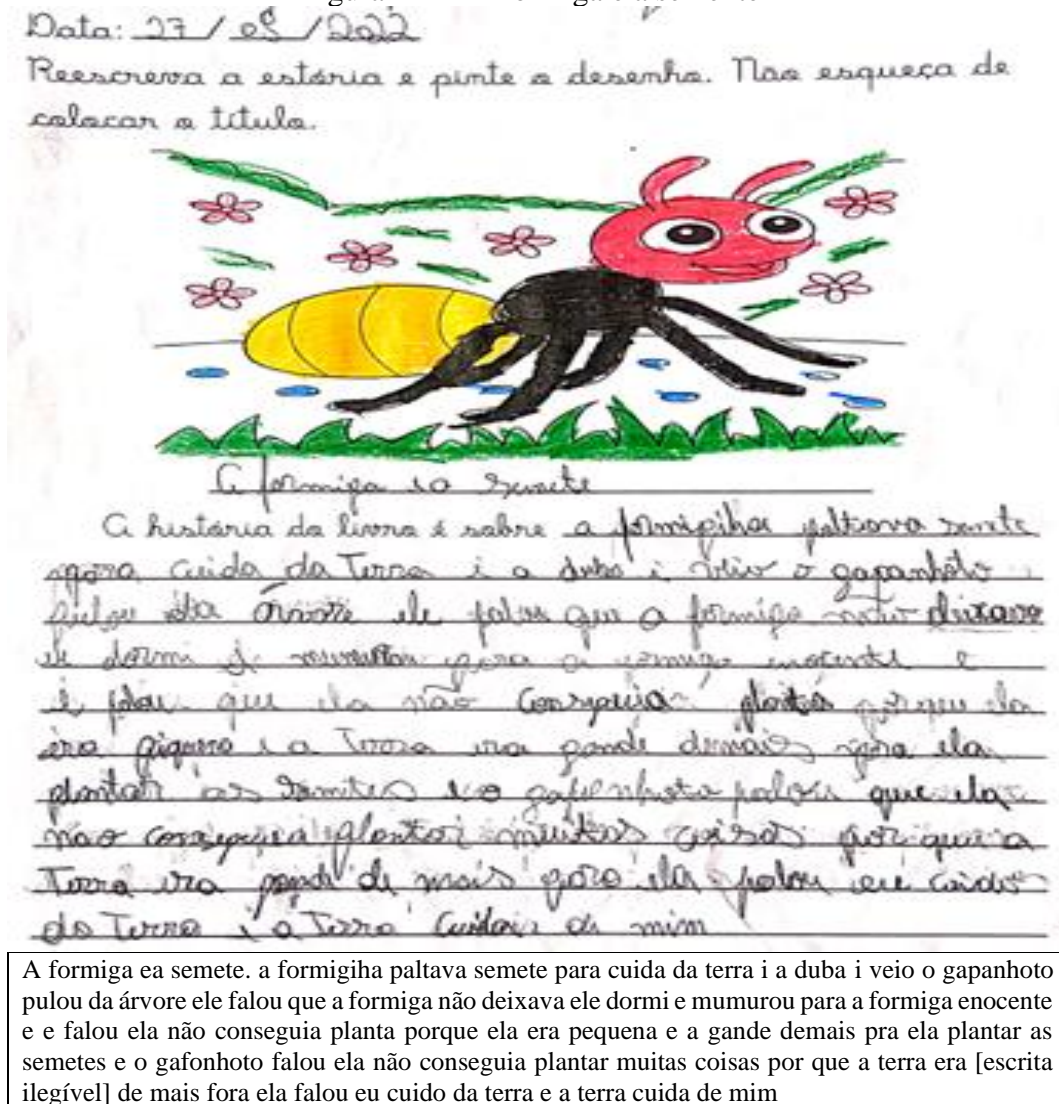 Data: 27 / 05 / 2022
Reescreva a estória e pinte o desenho. Não esqueça de
colocar o título.
A formiga e a semete
A história do livro é sobre a formigiha paltava semete
para cuida da Terra i a duba i veio o gapanhoto
pulou da árvore ele falou que a formiga não deixava
ele dormi para a enocente e
falou que ela não conseguia planta porque ela
era piquena e a Terra era gande demais para ela
plantar as semites e o gafonhoto falou que ela
não conseguia plantar muitas coisas por que a
Terra era gande de mais para ela falou eu cuido
da Terra i a Terra cuida de mim
A formiga ea semete. a formigiha paltava semete para cuida da terra i a duba i veio o gapanhoto
pulou da árvore ele falou que a formiga não deixava ele dormi e mumurou para a formiga enocente
e e falou ela não conseguia planta porque ela era pequena e a gande demais pra ela plantar as
semetes e o gafonhoto falou ela não conseguia plantar muitas coisas por que a terra era [escrita
ilegível] de mais fora ela falou eu cuido da terra e a terra cuida de mim